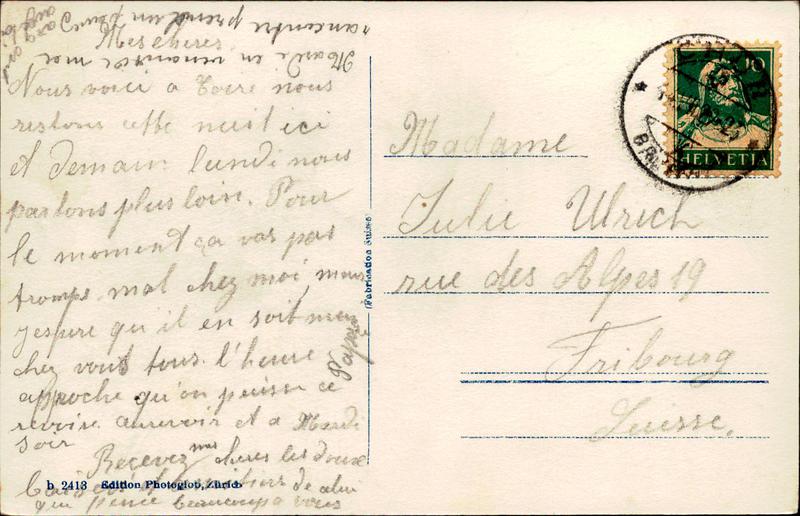 Mes chères
Nous voici a Coire nous
restons cette nuit ici
et demain lundi nous
partons plus loin. Pour
le moment ça vas pas
tromps mal chez moi, mais
j'espère qu'il en soit
chez vous tous. l'heure
approche qu'on puisse ce
revoir. aurevoir et a Mardi
soir
Recevez mes cheres les doux
baisers et de celui
qui pence beaucoup a vous
Papa
Mardi en
rancontre prend un
Madame
Julie Ulrich
rue des Alpes 19
Fribourg
Suisse.
(Fabrication Suisse)
b 2413 Edition Photoglob, Zürich
10
HELVETIA
CHUR